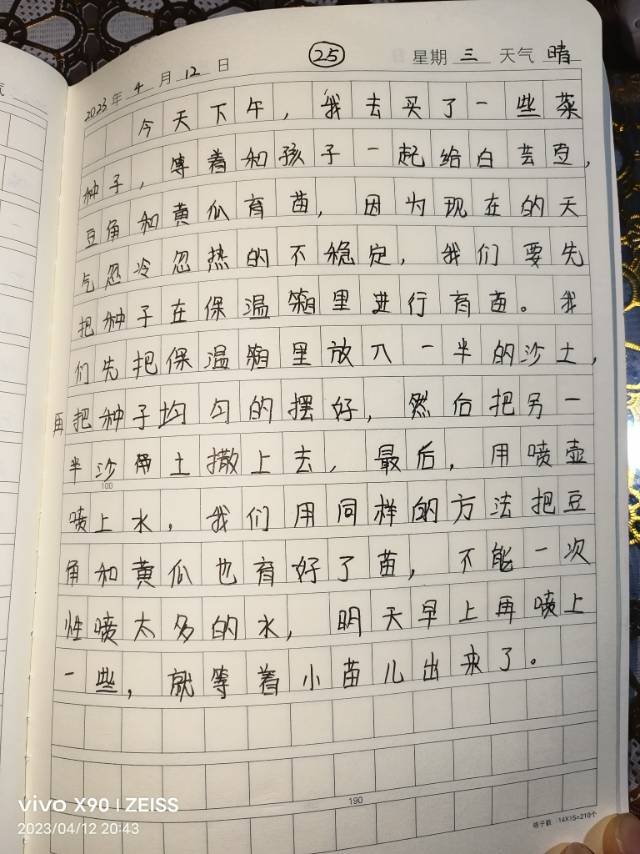 2023年4月12日 25 星期三 天气晴
今天下午，我去买了一些菜
种子，等着和孩子一起给白芸豆，
豆角和黄瓜育苗，因为现在的天
气忽冷忽热的不稳定，我们要先
把种子在保温箱里进行育苗。我
们先把保温箱里放入一半的沙土，
再把种子均匀的摆好，然后把另一
半沙土撒上去，最后，用喷壶
100
喷上水，我们用同样的方法把豆
角和黄瓜也育好了苗，不能一次
性喷太多的水，明天早上再喷上
一些，就等着小苗儿出来了。
190
格子数 14X15=210个
vivo X90 | ZEISS
2023/04/12 20:43